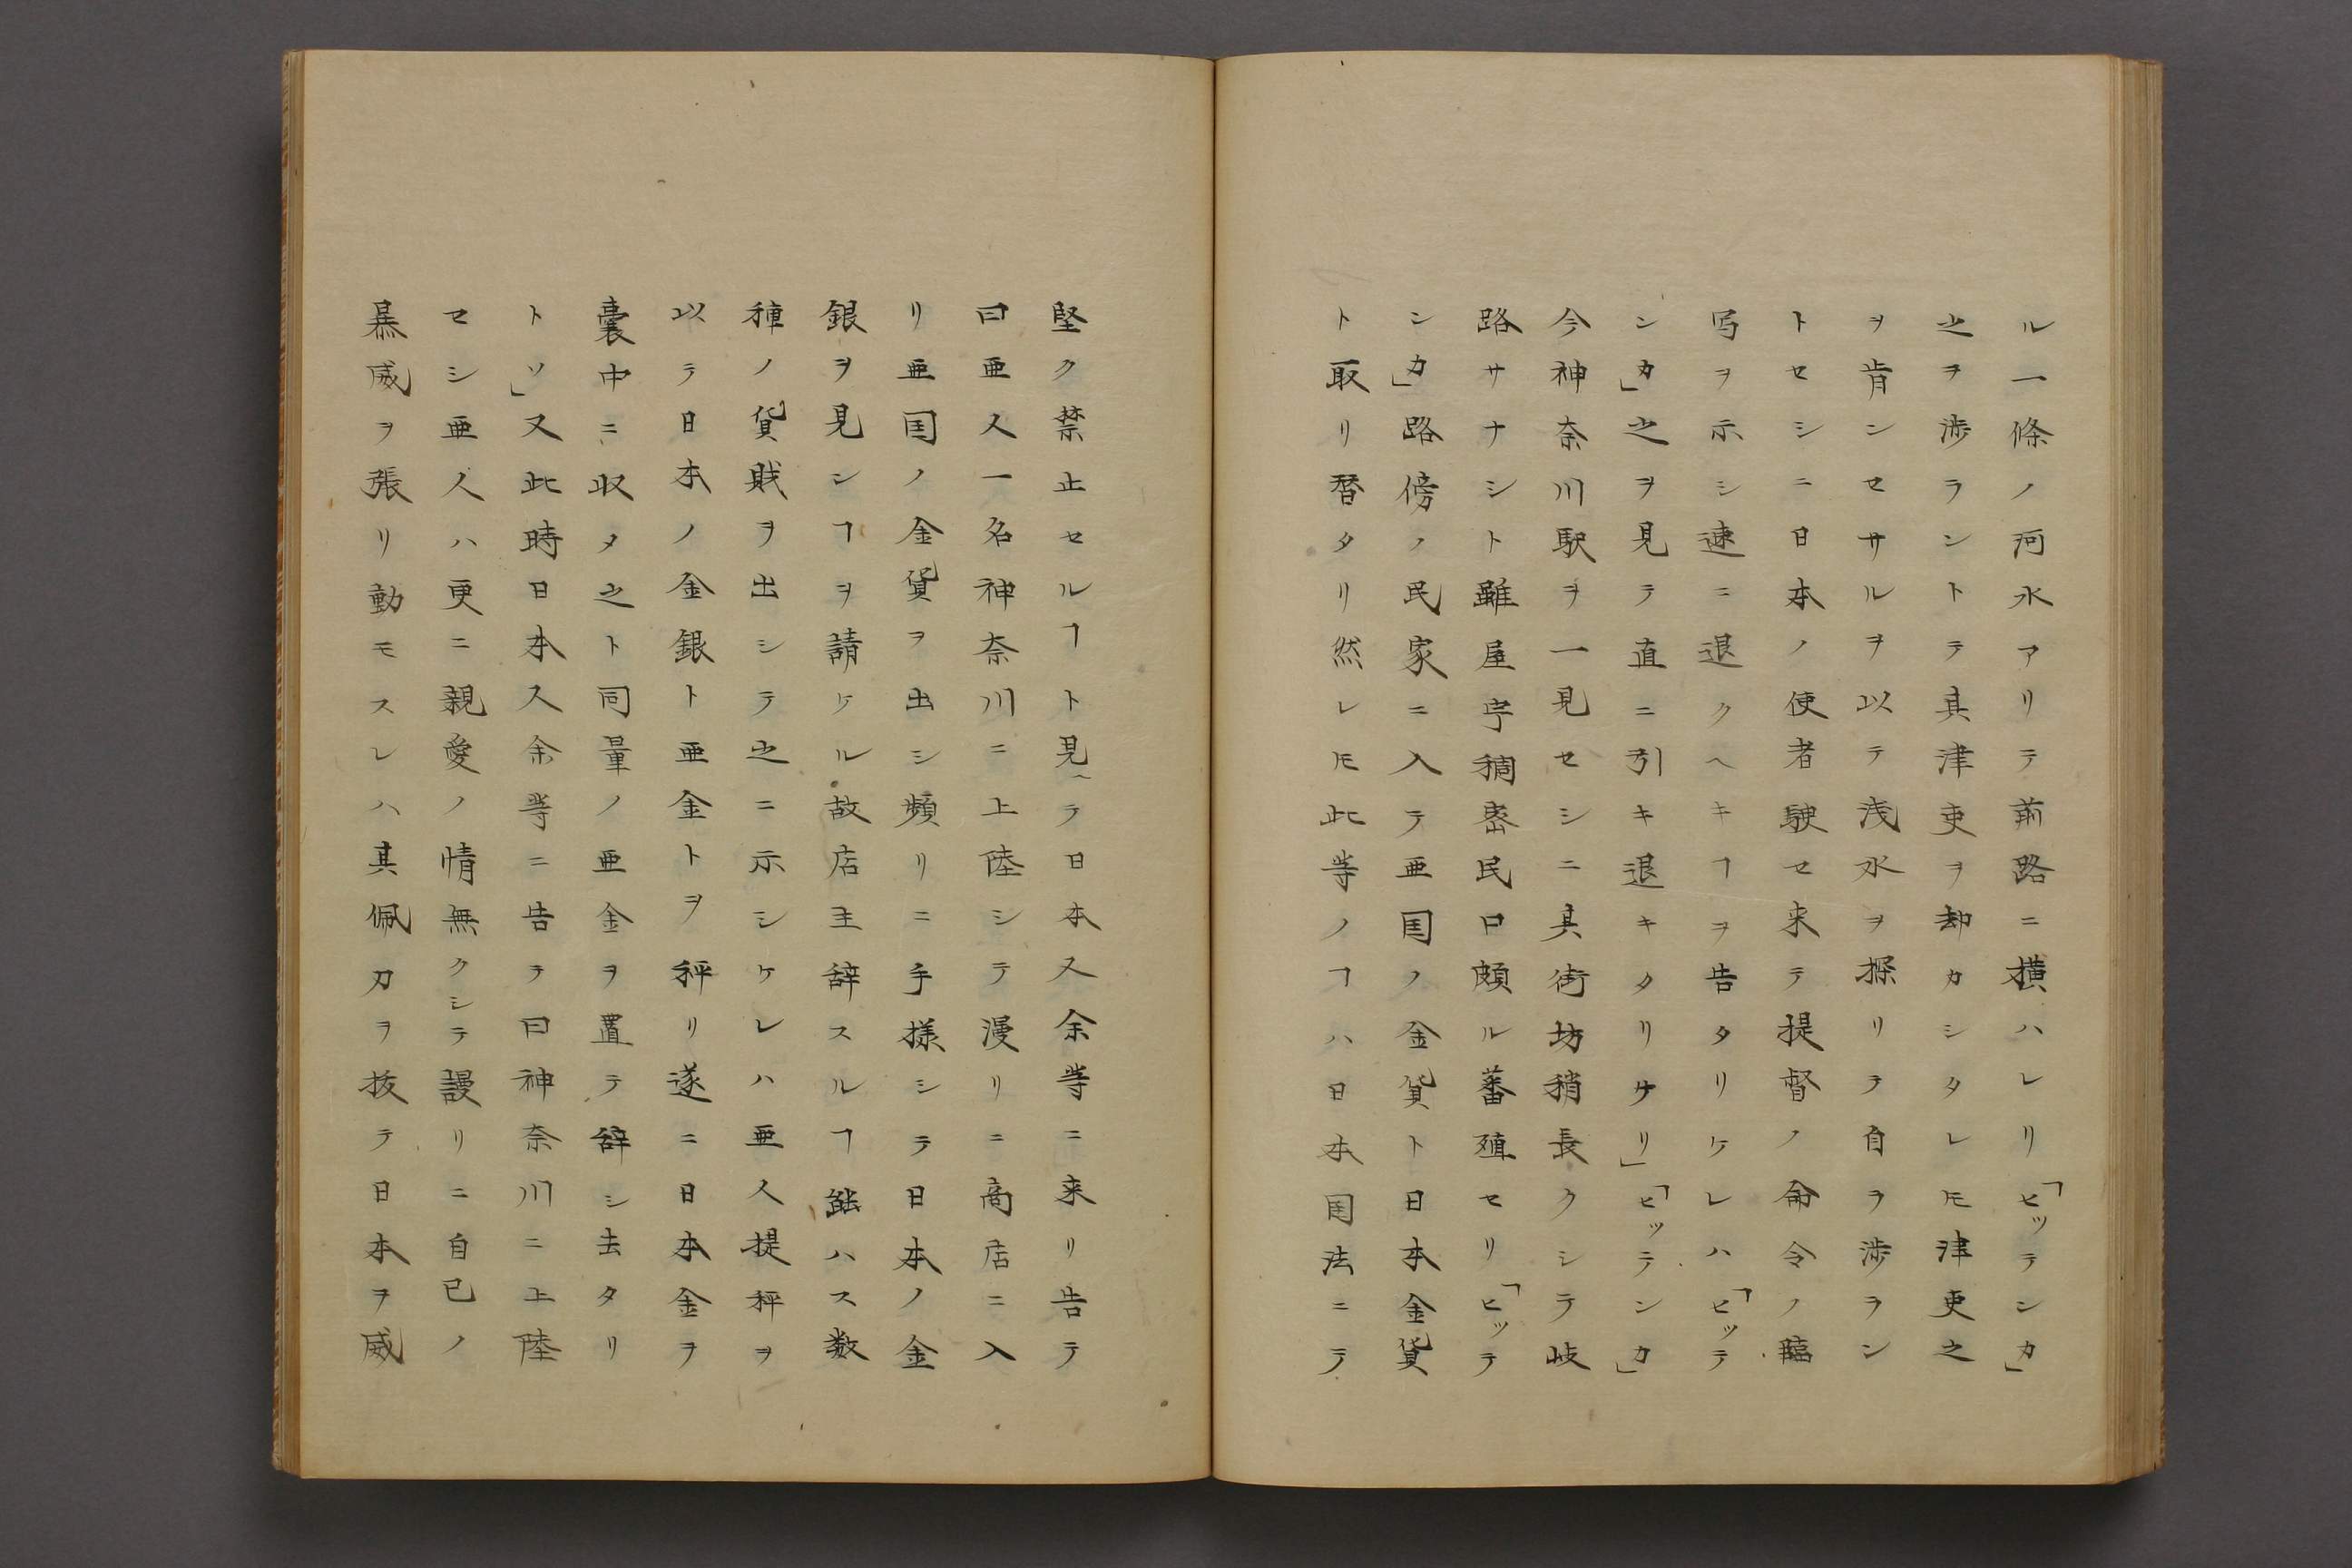 ル一條ノ河水アリテ前路ニ横ハレリ「ヒッテンカ」
之ヲ渉ラントテ其津吏ヲ却カシタレㇳモ津吏之
ヲ肯ンセサルヲ以テ浅水ヲ探リテ自ヲ渉ラン
トセシニ日本ノ使者駛セ来テ提督ノ命令ノ臨
写ヲ示シ速ニ退クヘキヿヲ告タリケレハ「ヒッテ
ンカ」之ヲ見テ直ニ引キ退キタリサリ」「ヒッテンカ」
今神奈川駅ヲ一見セシニ其街坊稍長クシテ岐
路サナシト雖屋宇稠密民口頗ル蕃殖セリ「ヒッテ
ンカ」路傍ノ民家ニ入テ亜国ノ金貨ト日本金貨
ト取リ替タリ然レㇳモ此等ノヿハ日本国法ニテ
堅ク禁止セルヿト見ヘテ日本人余等ニ来リ告テ
曰亜人一名神奈川ニ上陸シテ漫リニ商店ニ入
リ亜国ノ金貨ヲ出シ頻リニ手様シテ日本ノ金
銀ヲ見ンヿヲ請ケル故店主辞スルヿ能ハス数
種ノ貨賎ヲ出シテ之ニ示シケレハ亜人提秤ヲ
以テ日本ノ金銀ト亜金トヲ秤リ遂ニ日本金ヲ
嚢中ニ収メ之ト同量ノ亜金ヲ置テ辞シ去タリ
トソ」又此時日本人余等ニ告テ曰神奈川ニ上陸
セシ亜人ハ更ニ親愛ノ情無クシテ謾リニ自己ノ
暴威ヲ張リ動モスレハ其佩刀ヲ抜テ日本ヲ威